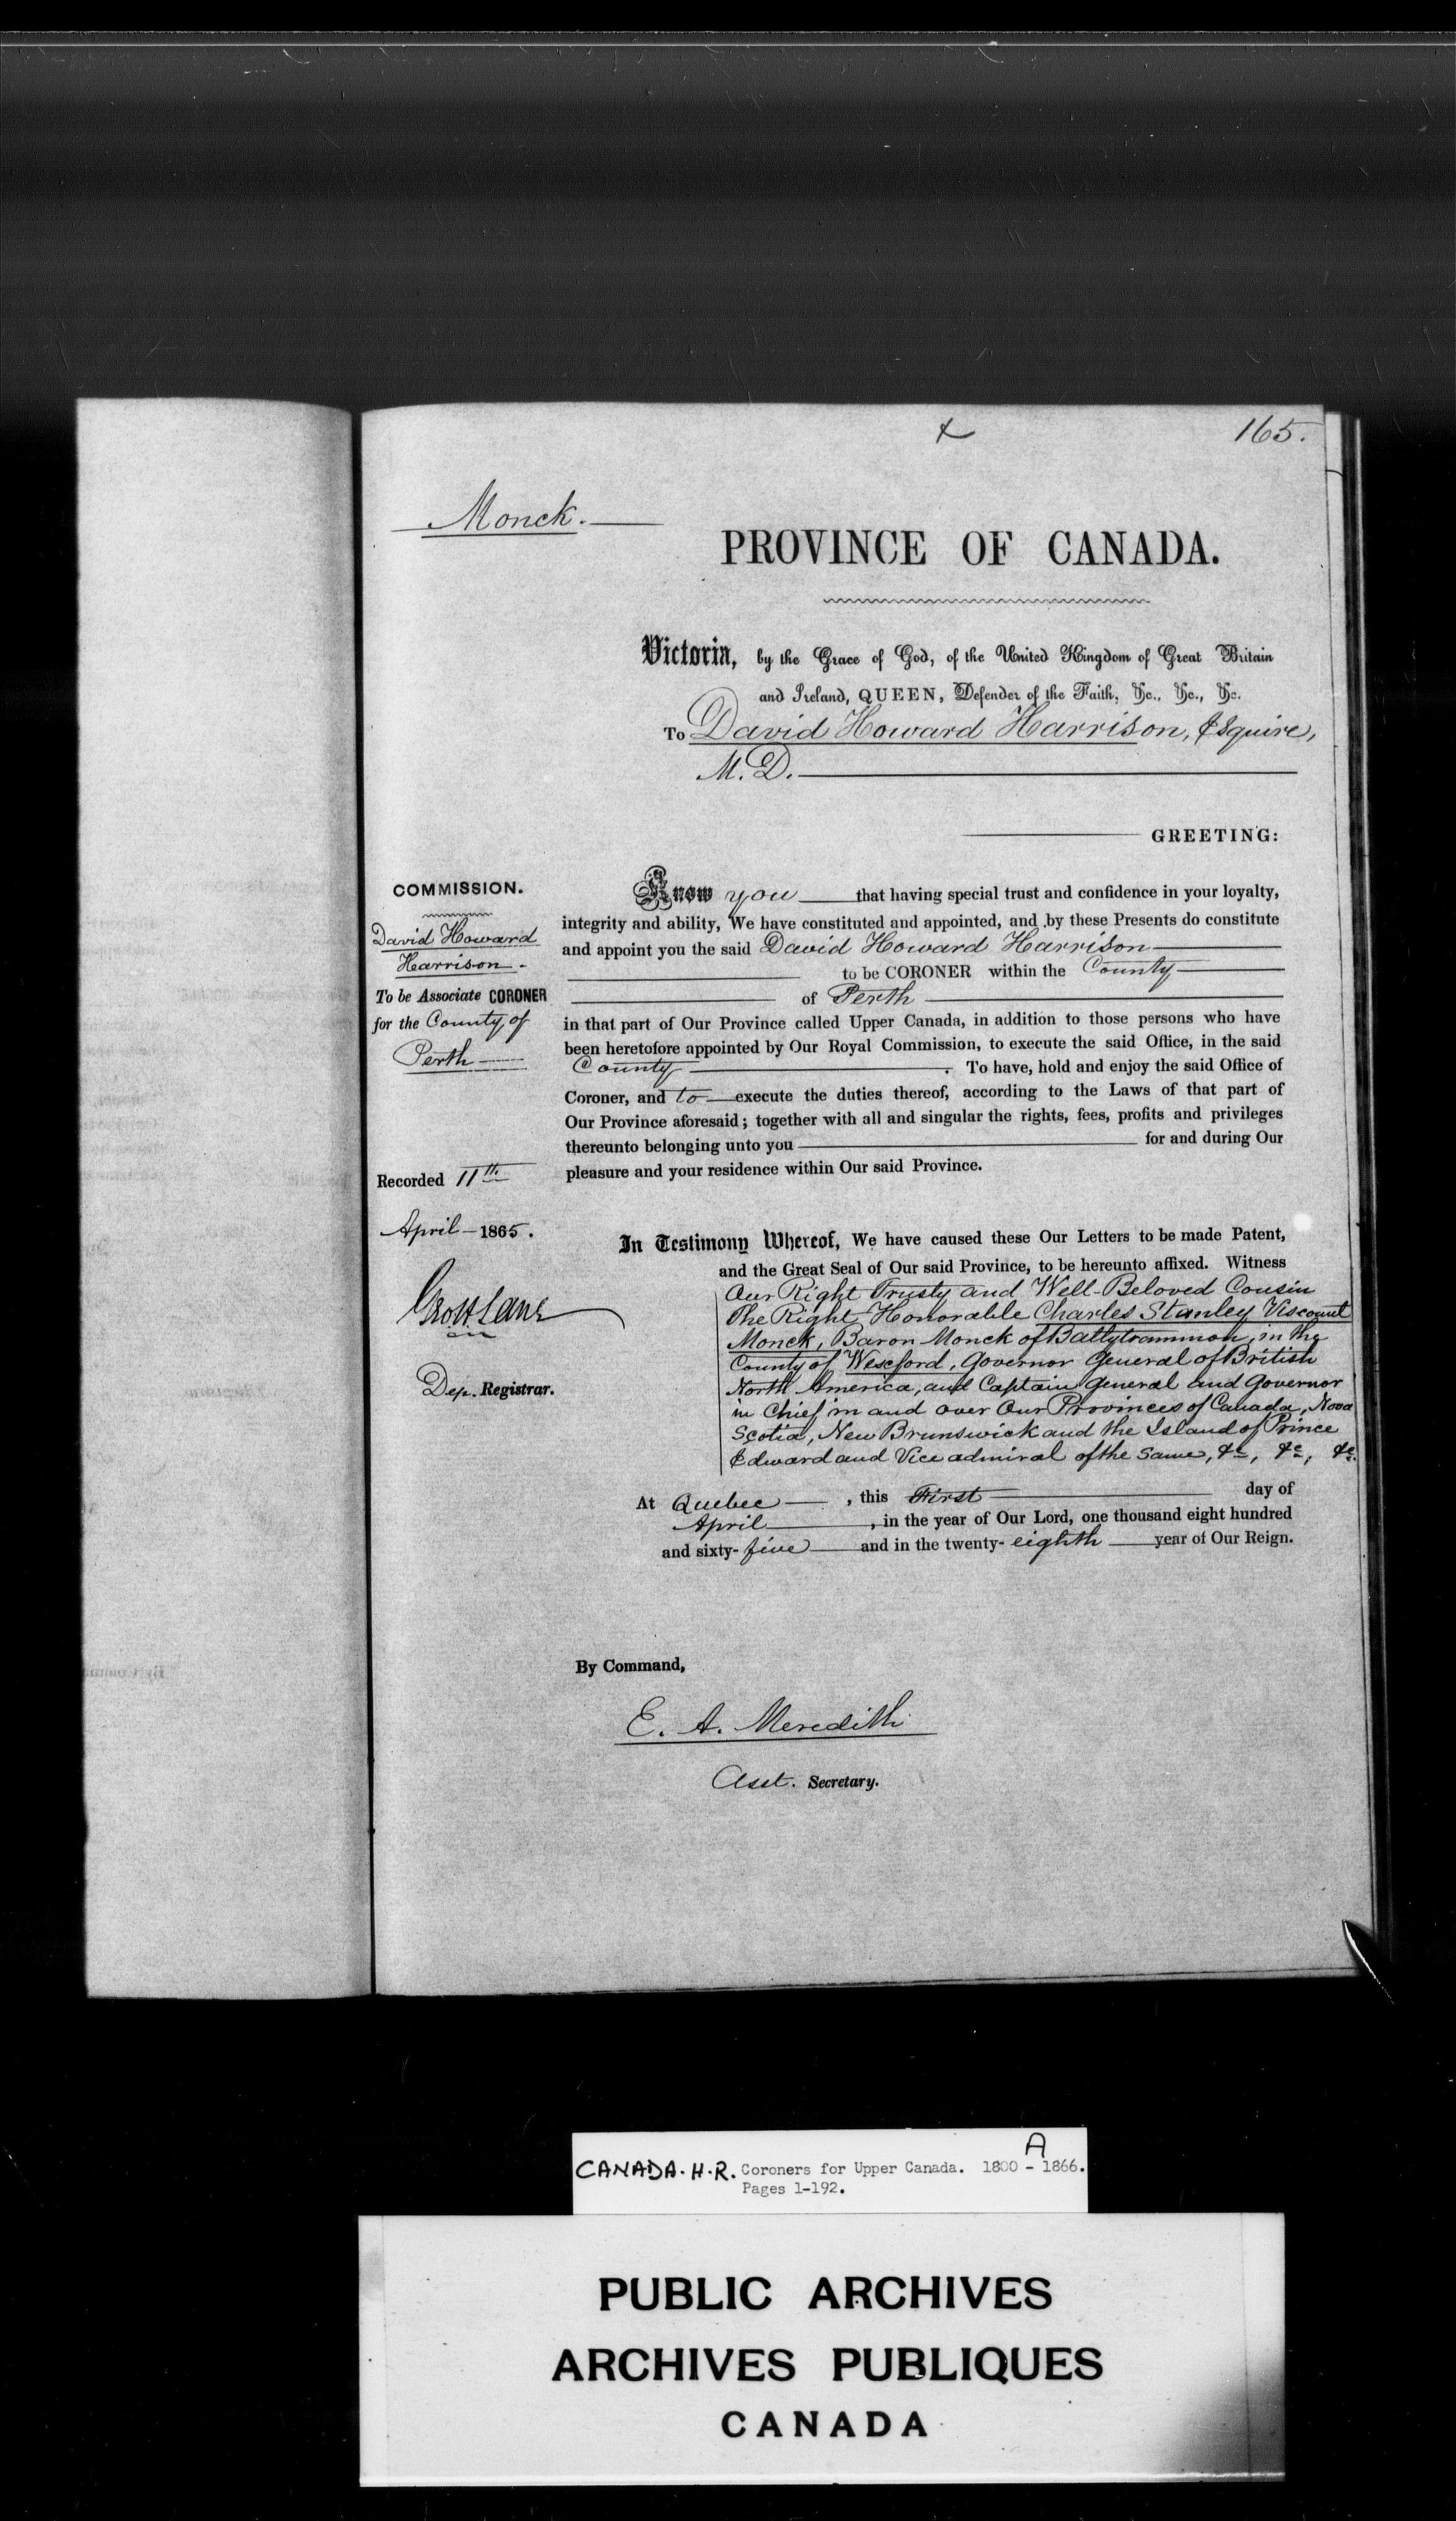 165.
Monck.
PROVINCE OF CANADA.
Victoria, by the Grace of God, of the United Kingdom of Great Britain
and Ireland, QUEEN, Defender of the Faith, &c., &c., &c.
To David Howard Harrison, Esquire,
M. D.
GREETING:
COMMISSION.
David Howard
Harrison.
To be Associate CORONER
for the County of
Perth
Recorded 11th
April 1865.
Dep. Registrar.
Know you that having special trust and confidence in your loyalty,
integrity and ability, We have constituted and appointed, and by these Presents do constitute
and appoint you the said David Howard Harrison
to be CORONER within the County
of Perth
in that part of Our Province called Upper Canada, in addition to those persons who have
been heretofore appointed by Our Royal Commission, to execute the said Office, in the said
County. To have, hold and enjoy the said Office of
Coroner, and to execute the duties thereof, according to the Laws of that part of
Our Province aforesaid; together with all and singular the rights, fees, profits and privileges
thereunto belonging unto you for and during Our
pleasure and your residence within Our said Province.
In Testimony Whereof, We have caused these Our Letters to be made Patent,
and the Great Seal of Our said Province, to be hereunto affixed. Witness
Our Right Trusty and Well-Beloved Cousin
The Right Honorable Charles Stanley Viscount
Monck, Baron Monck of Ballytrammon, in the
County of Wexford, Governor General of British
North America, and Captain General and Governor
in Chief in and over Our Provinces of Canada, Nova
Scotia, New Brunswick and the Island of Prince
Edward and Vice admiral of the Same, &c, &c, &c.
At Quebec, this First day of
April, in the year of Our Lord, one thousand eight hundred
and sixty-five and in the twenty-eighth year of Our Reign.
By Command,
E. A. Meredith
Asst. Secretary.
A
CANADA. H. R. Coroners for Upper Canada. 1800 - 1866.
Pages 1-192.
PUBLIC ARCHIVES
ARCHIVES PUBLIQUES
CANADA